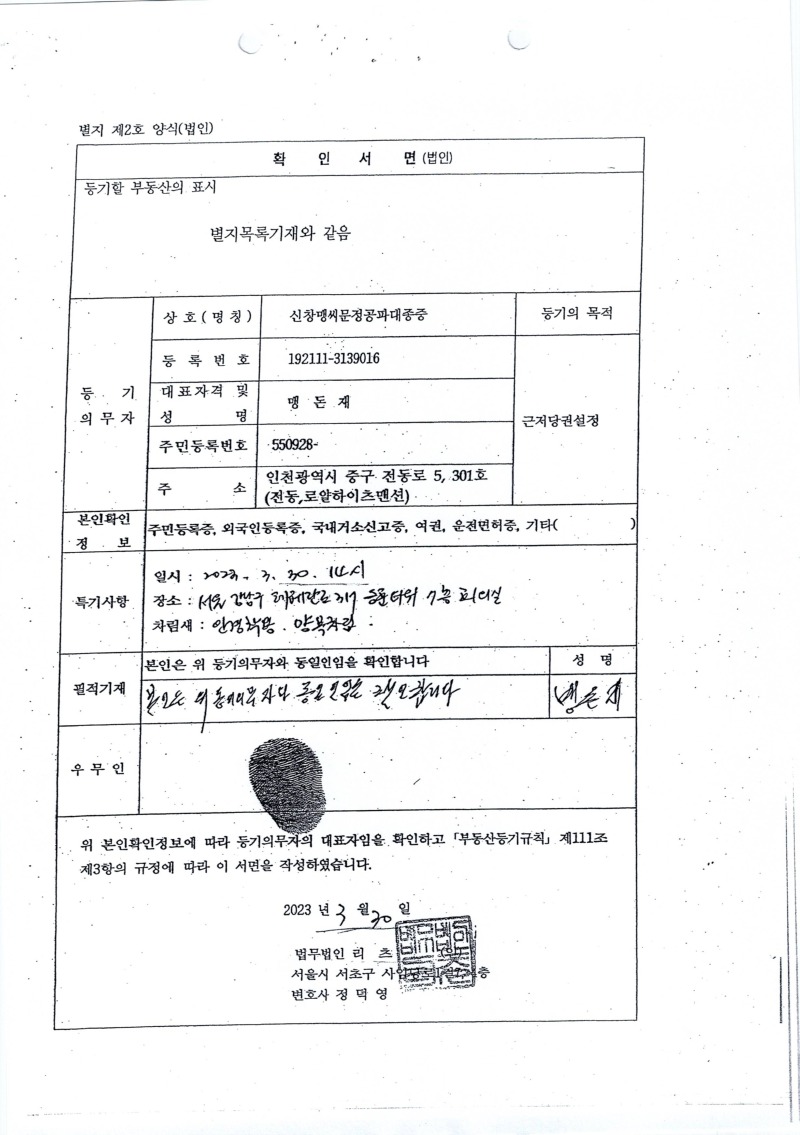 별지 제2호 양식(법인)
확 인 서 면 (법인)
등기할 부동산의 표시
별지목록기재와 같음
등 기
의 무 자
상 호 ( 명 칭 )
신창맹씨문정공파대종중
등기의 목적
등 록 번 호
192111-3139016
대표자격 및
성 명
맹 돈 재
근저당권설정
주민등록번호
550928-
주 소
인천광역시 중구 전동로 5, 301호
(전동,로얄하이츠맨션)
본인확인
정 보
주민등록증, 외국인등록증, 국내거소신고증, 여권, 운전면허증, 기타( )
특기사항
일시 : 2023. 3. 30. 14시
장소 : 서울 강남구 테헤란로 317 동훈타워 7층 회의실
차림새 : 안경착용. 양복차림.
필적기재
본인은 위 등기의무자와 동일인임을 확인합니다
성 명
본인은 위 등기의무자와 동일인임을 확인합니다
맹돈재
우 무 인
위 본인확인정보에 따라 등기의무자의 대표자임을 확인하고 「부동산등기규칙」 제111조
제3항의 규정에 따라 이 서면을 작성하였습니다.
2023 년 3 월 30 일
법무법인 리 츠
서울시 서초구 층
변호사 정 덕 영